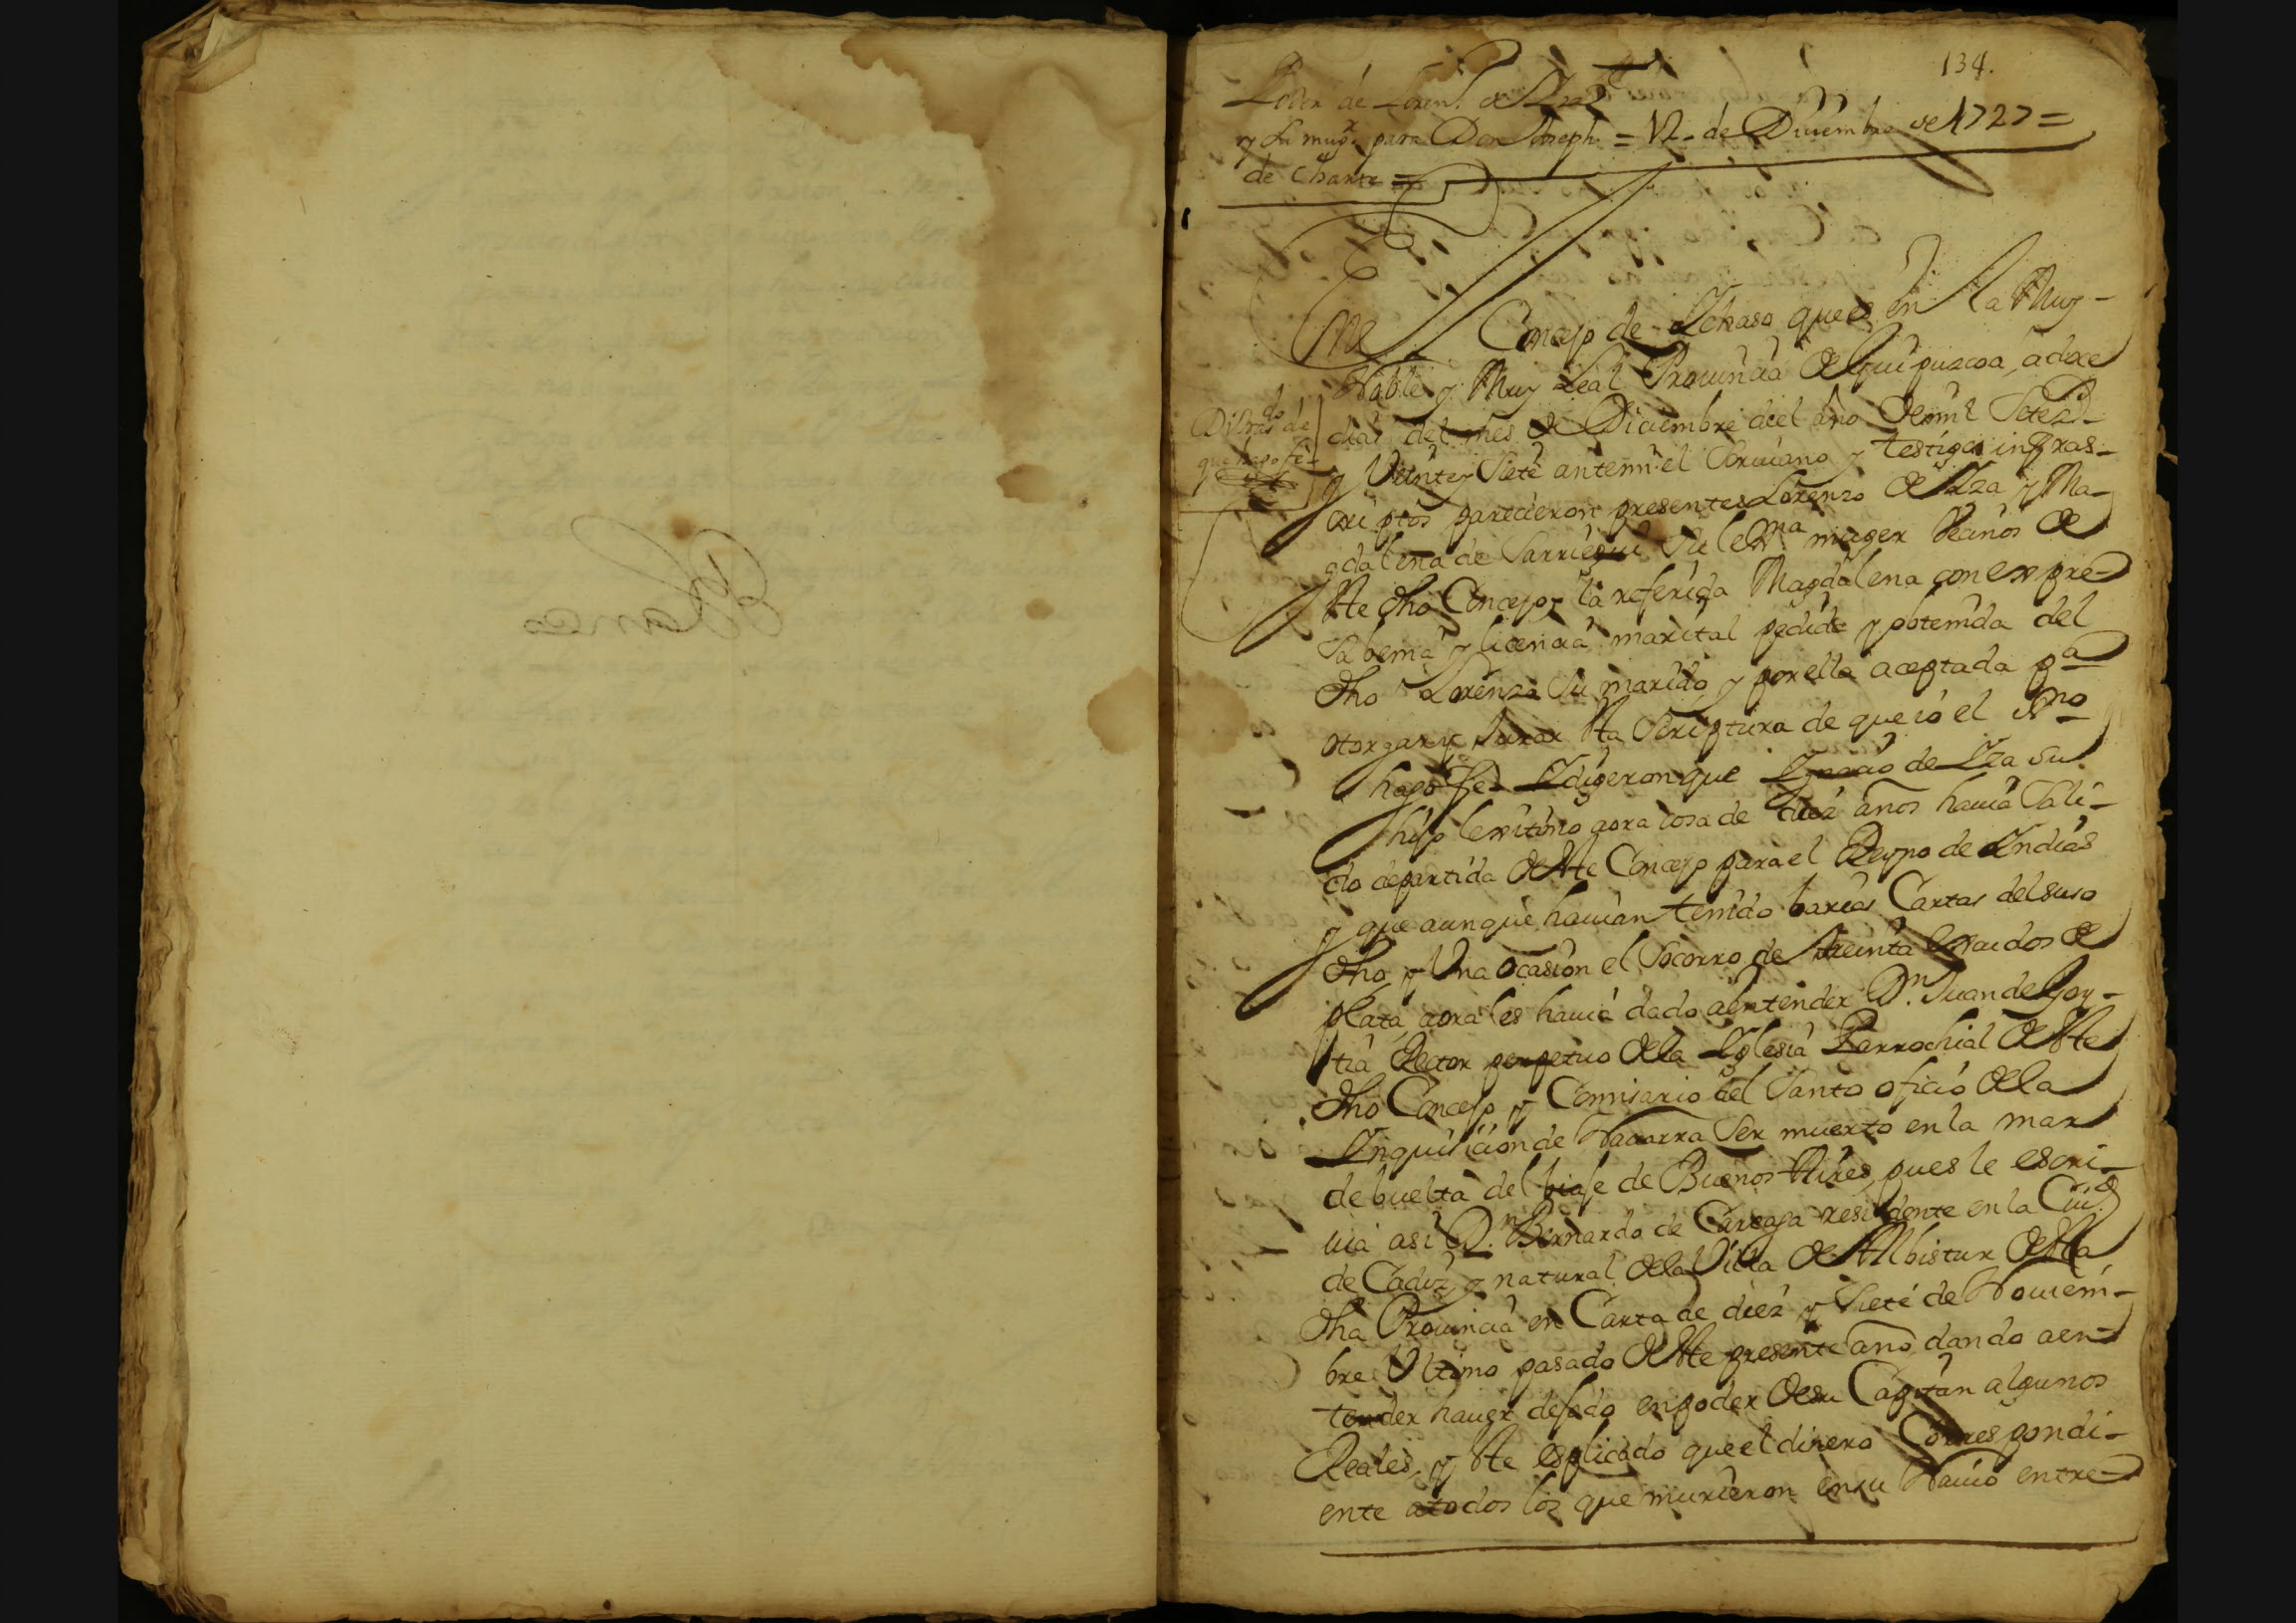 134.
Poder de Loren.º de Yza
y Su mug.r para Don Joseph = 12 de Diciembre de 1727 =
de Charte =
En el Concejo de Ychaso que es en la Muy
Noble y Muy Leal Prouincia de Guipuzcoa, a doce
dias del mes de Diciembre del año de mil Setez.s
y Veinte y Siete antemi el Scriuano y testigos infras-
criptos parecieron presentes Lorenzo de Yza y Ma-
gdalena de Sarriegui Su lexma muger Vecinos de
este dho Concejo y la referida Magdalena con expre-
sa benia y licencia marital pedida y obtenida del
dho Lorenzo Su marido y por ella aceptada pa
otorgar y Jurar esta Scriptura de que io el ssno
hago fe. Y digeron que Ygnacio de Yza su
hijo lexitimo aora cosa de diez años hauia Sali-
do de partida de este Concejo para el Reyno de Yndias
y que aunque hauian tenido barias Cartas del suso
dho, y Una ocasion el Socorro de treinta escudos de
plata, aora les hauia dado a entender Dn. Juan de Goy-
tia Rector perpetuo de la Yglesia Parrochial de este
dho Concejo y Comisario del Santo oficio de la
Ynquisicion de Nauarra Ser muerto en la mar
de buelta del biaje de Buenos Aires, pues le escri-
uia asi Dn. Bernardo de Careaga residente en la Ciud
de Cadiz y natural de la Villa de Albistur de esta
dha Prouincia en Carta de diez y Siete de Nouiem-
bre Ultimo pasado de este presente año, dando a en-
tender hauer dejado en poder de su Capitan algunos
Reales, y este esplicado que el dinero Correspondi-
ente a todos los que murieron en su Nauio entre-
que hago fe